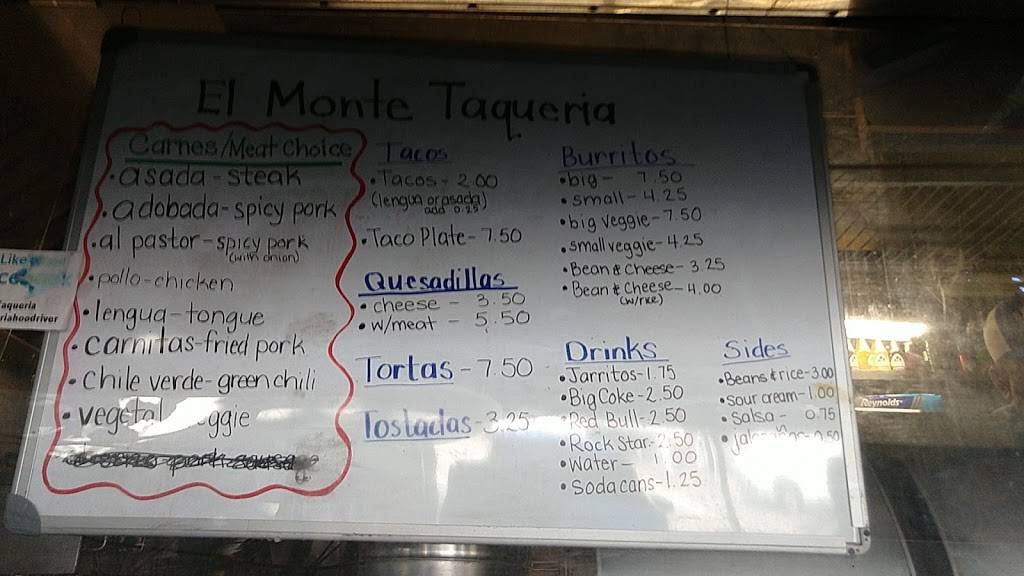 El Monte Taqueria
Carnes/Meat Choice
• asada - steak
• adobada - spicy pork
• al pastor - spicy pork
(with onion)
• pollo - chicken
• lengua - tongue
• carnitas - fried pork
• chile verde - green chili
• vegetal
Tacos
• Tacos - 2.00
(lengua or asada)
add 0.25
• Taco Plate - 7.50
Quesadillas
• cheese - 3.50
• w/meat - 5.50
Tortas - 7.50
Tostadas - 3.25
Burritos
• big - 7.50
• small - 4.25
• big veggie - 7.50
• small veggie - 4.25
• Bean & Cheese - 3.25
• Bean & Cheese - 4.00
(w/rice)
Drinks
• Jarritos - 1.75
• Big Coke - 2.50
• Red Bull - 2.50
• Rock Star - 2.50
• Water - 1.00
• Soda cans - 1.25
Sides
• Beans & rice - 3.00
• sour cream - 1.00
• Salsa - 0.75
0.50
Like
Reynolds